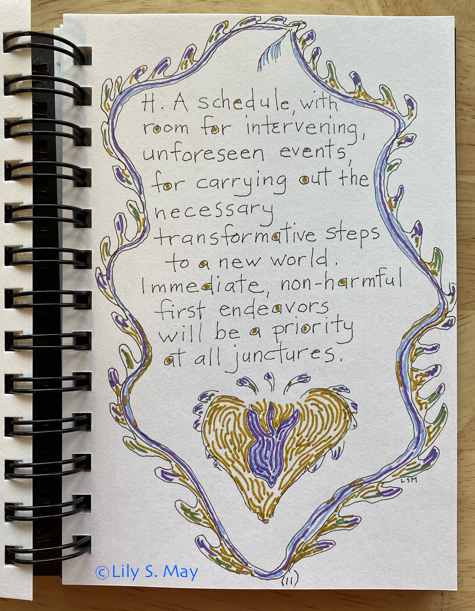 H. A schedule, with
room for intervening,
unforeseen events,
for carrying out the
necessary
transformative steps
to a new world.
Immediate, non-harmful
first endeavors
will be a priority
at all junctures.
LSM
©Lily S. May
(11)